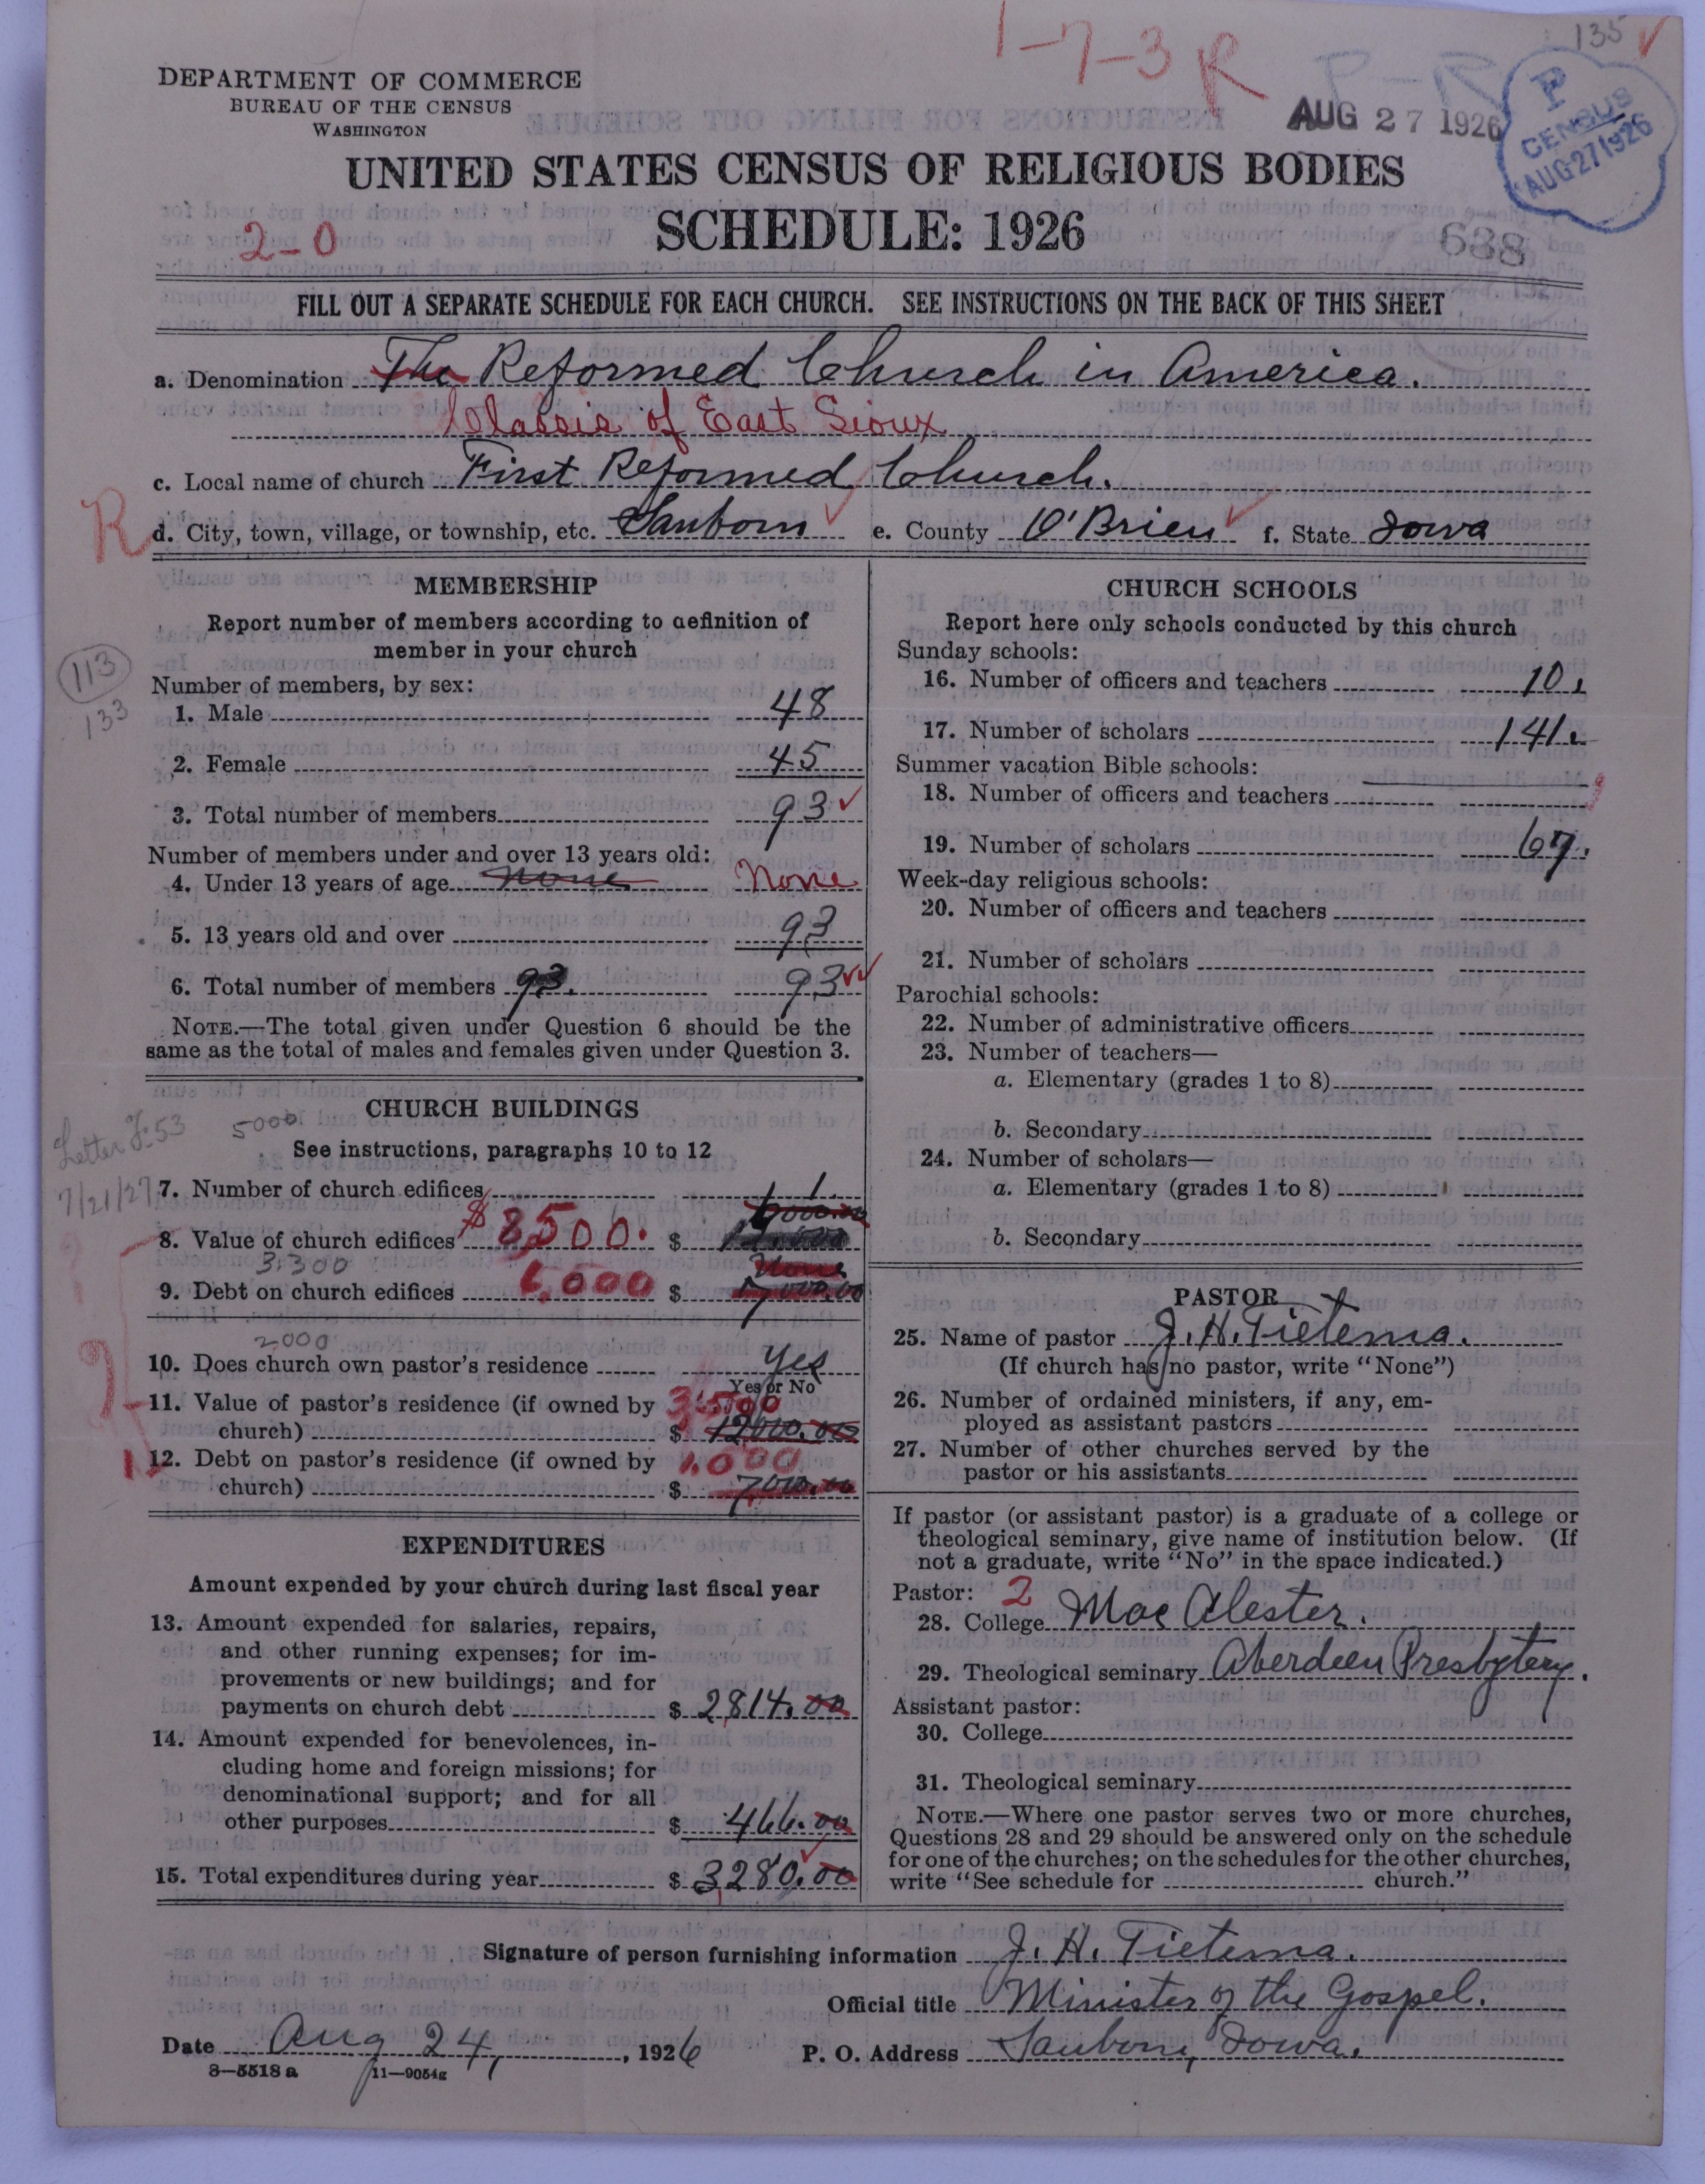 1-7-3 R
135
P-R
DEPARTMENT OF COMMERCE
BUREAU OF THE CENSUS
WASHINGTON
AUG 27 1926
P
CENSUS
AUG 27 1926
UNITED STATES CENSUS OF RELIGIOUS BODIES
2-0
SCHEDULE: 1926
638
FILL OUT A SEPARATE SCHEDULE FOR EACH CHURCH. SEE INSTRUCTIONS ON THE BACK OF THIS SHEET
a. Denomination The Reformed Church in America.
Classis of East Sioux
c. Local name of church First Reformed Church.
R
d. City, town, village, or township, etc. Sanborn e. County O'Brien f. State Iowa
MEMBERSHIP
Report number of members according to definition of
member in your church
113
133
Number of members, by sex:
1. Male 48
2. Female 45
3. Total number of members 93
Number of members under and over 13 years old:
4. Under 13 years of age None None
5. 13 years old and over 93
6. Total number of members 93. 93
NOTE.—The total given under Question 6 should be the
same as the total of males and females given under Question 3.
CHURCH BUILDINGS
Letter F:53
7/21/27
5000
See instructions, paragraphs 10 to 12
7. Number of church edifices 1.
8. Value of church edifices $8500. $
3300
9. Debt on church edifices 6,000 $ None
2000
10. Does church own pastor's residence Yes
Yes or No
11. Value of pastor's residence (if owned by 3500
church) $ 12000.00
12. Debt on pastor's residence (if owned by 1,000
church) $ 7000.00
EXPENDITURES
Amount expended by your church during last fiscal year
13. Amount expended for salaries, repairs,
and other running expenses; for im-
provements or new buildings; and for
payments on church debt $ 2814.00
14. Amount expended for benevolences, in-
cluding home and foreign missions; for
denominational support; and for all
other purposes $ 466.00
15. Total expenditures during year $ 3280.00
CHURCH SCHOOLS
Report here only schools conducted by this church
Sunday schools:
16. Number of officers and teachers 10.
17. Number of scholars 141.
Summer vacation Bible schools:
18. Number of officers and teachers
19. Number of scholars 67.
Week-day religious schools:
20. Number of officers and teachers
21. Number of scholars
Parochial schools:
22. Number of administrative officers
23. Number of teachers—
a. Elementary (grades 1 to 8)
b. Secondary
24. Number of scholars—
a. Elementary (grades 1 to 8)
b. Secondary
PASTOR
25. Name of pastor J. H. Tietema.
(If church has no pastor, write "None")
26. Number of ordained ministers, if any, em-
ployed as assistant pastors
27. Number of other churches served by the
pastor or his assistants
If pastor (or assistant pastor) is a graduate of a college or
theological seminary, give name of institution below. (If
not a graduate, write "No" in the space indicated.)
Pastor: 2
28. College Mac Alester.
29. Theological seminary Aberdeen Presbytery.
Assistant pastor:
30. College
31. Theological seminary
NOTE.—Where one pastor serves two or more churches,
Questions 28 and 29 should be answered only on the schedule
for one of the churches; on the schedules for the other churches,
write "See schedule for church."
Signature of person furnishing information J. H. Tietema.
Official title Minister of the Gospel.
Date Aug 24, 1926 P. O. Address Sanborn, Iowa.
8—5518 a 11—9054g